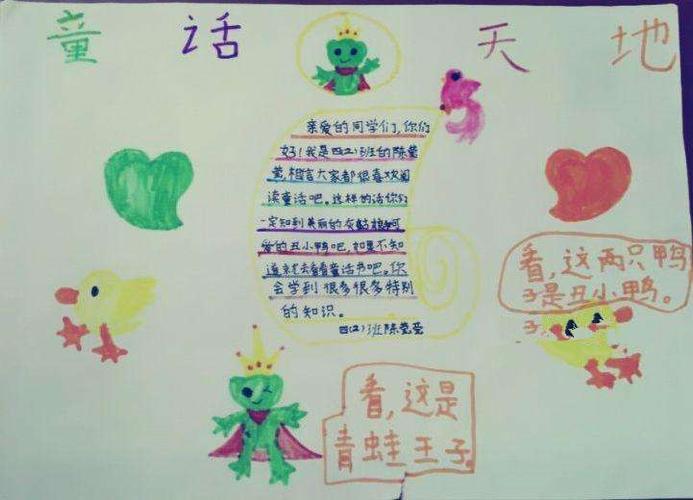 童话天地
亲爱的同学们,你们
好!我是四(2)班的陈莹
莹,相信大家都很喜欢阅
读童话吧。这样的话你们
一定知到美丽的灰姑娘和可
爱的丑小鸭吧,如果不知
道就去看看童话书吧。你
会学到很多很多特别
的知识。
四(2)班陈莹莹
看,这两只鸭
子是丑小鸭。
看,这是
青蛙王子。